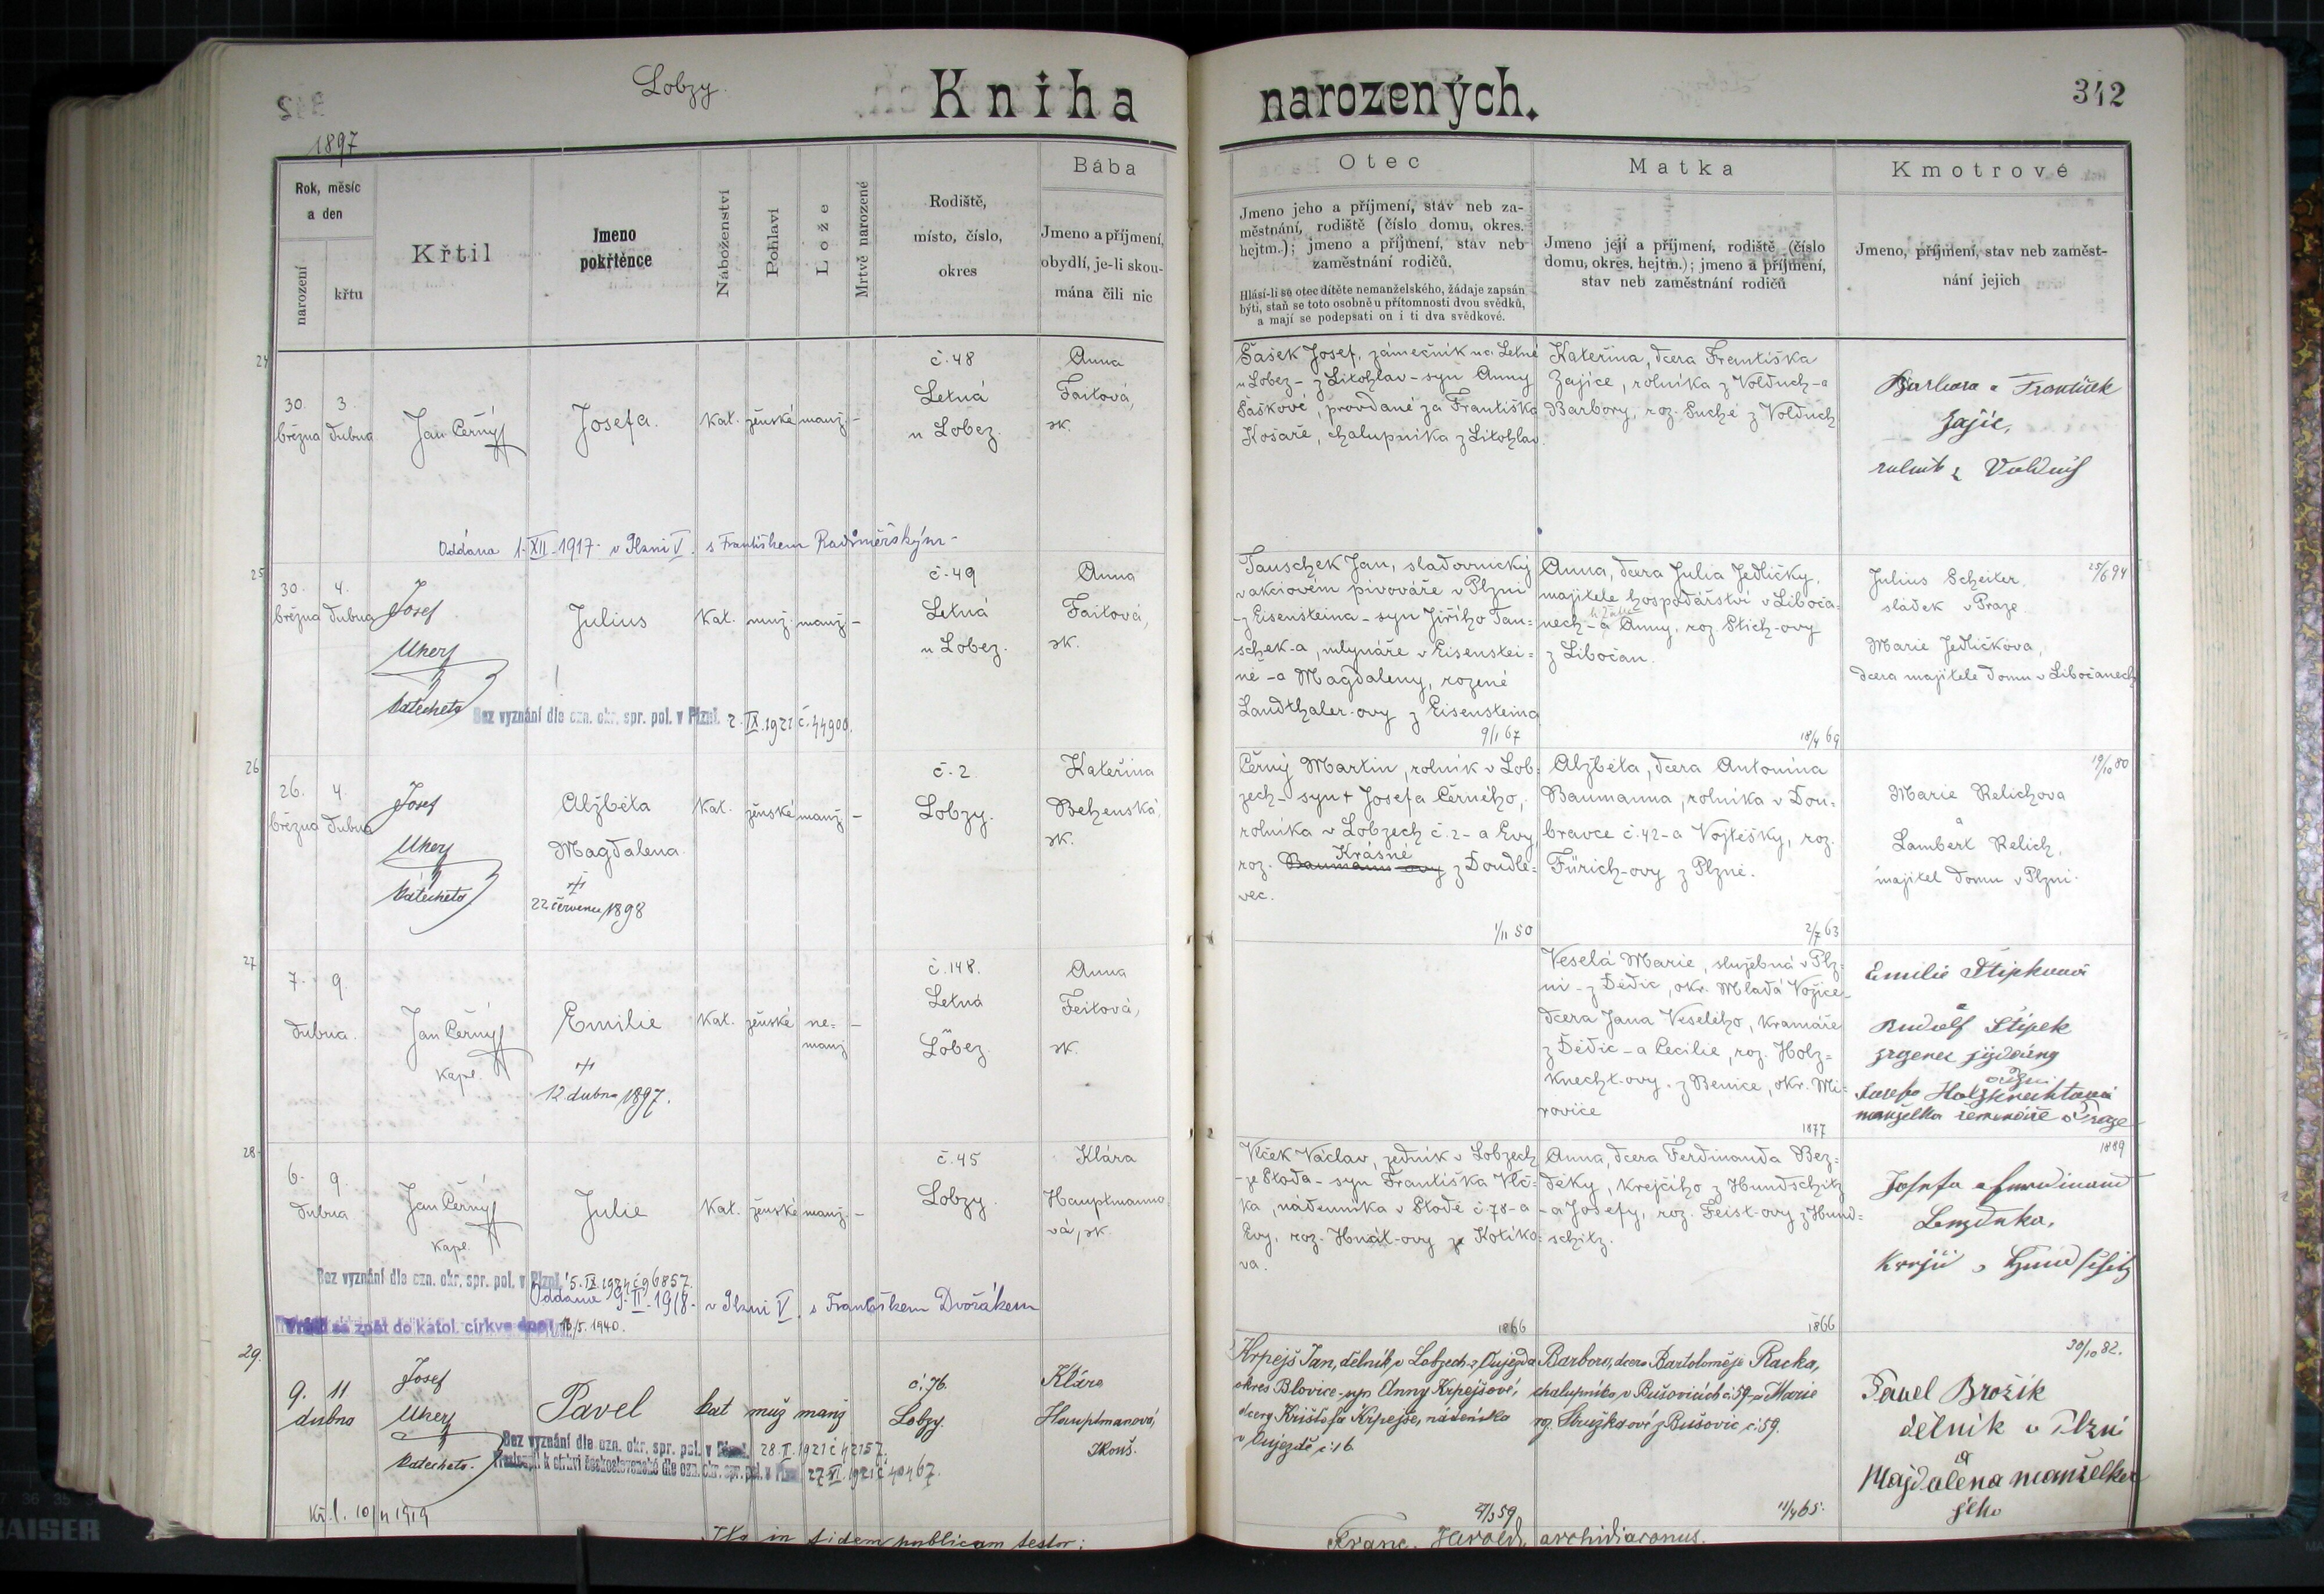 Lobzy.
Kniha narozených.
342
1897
Rok, měsíc
a den
narození
křtu
Křtil
Jmeno
pokřtěnce
Náboženství
Pohlaví
Lože
Mrtvě narozené
Rodiště,
místo, číslo,
okres
Bába
Jmeno a příjmení,
obydlí, je-li skou-
mána čili nic
Otec
Jmeno jeho a příjmení, stav neb za-
městnání, rodiště (číslo domu, okres.
hejtm.); jmeno a příjmení, stav neb
zaměstnání rodičů.
Hlásí-li se otec dítěte nemanželského, žádaje zapsán
býti, staň se toto osobně u přítomnosti dvou svědků,
a mají se podepsati on i ti dva svědkové.
Matka
Jmeno její a příjmení, rodiště (číslo
domu, okres. hejtm.); jmeno a příjmení,
stav neb zaměstnání rodičů
Kmotrové
Jmeno, příjmení, stav neb zaměst-
nání jejich
24
30.
března
3.
dubna
Jan Černý
Josefa.
Kat.
ženské
manž.
-
č. 48
Letná
u Lobez.
Anna
Faitová,
zk.
Šašek Josef, zámečník na Letné
u Lobez - z Litohlav - syn Anny
Šaškové, provdané za Františka
Košaře, chalupníka z Litohlav.
Kateřina, dcera Františka
Zajíce, rolníka z Volduch - a
Barbory, roz. Suché z Volduch
Barbora a František
Zajíc,
rolník z
Oddána 1. XII. 1917 v Plzni V. s Františkem Radiměřským -
25
30.
března
4.
dubna
Josef
Uherý
katecheta
Julius
Kat.
muž.
manž.
-
č. 49
Letná
u Lobez.
Anna
Faitová,
zk.
Tauschek Jan, sladovnický
v akciovém pivováře v Plzni
- z Eisensteina - syn Jiřího Tau=
schek-a, mlynáře v Eisenstei=
ně - a Magdaleny, rozené
Landthaler-ovy z Eisensteina
9/1 67
Anna, dcera Julia Jedličky,
majitele hospodářství v Liboča=
nech - a Anny, roz. Stich-ovy
z Libočan.
18/4 69
25/6 94
Julius Scheiter,
sládek v Praze
Marie Jedličkova,
dcera majitele domu v Libočanech
Bez vyznání dle ozn. okr. spr. pol. v Plzni. 2. IX. 1921 č. 44900.
26
26.
března
4.
dubna
Josef
Uherý
katecheta
Alžběta
Magdalena.
†
22. července 1898
Kat.
ženské
manž.
-
č. 2
Lobzy.
Kateřina
Behenská,
zk.
Černý Martin, rolník v Lob=
zech - syn † Josefa Černého,
rolníka v Lobzech č. 2 - a Evy,
roz. Baumann-ovy Krásné z Doudle=
vec.
1/11 50
Alžběta, dcera Antonína
Baumanna, rolníka v Dou=
bravce č. 42 - a Vojtěšky, roz.
Fürich-ovy z Plzně.
2/7 63
19/10 80
Marie Relichova
a
Lambert Relich,
majitel domu v Plzni.
27
7.
9.
dubna.
Jan Černý
kapl.
Emilie
†
12. dubna 1897.
Kat.
ženské
ne=
manž.
-
č. 148.
Letná
u
Lobez.
Anna
Feitová,
zk.
Veselá Marie, služebná v Plz=
ni - z Dědic, okr. Mladá Vožice -
dcera Jana Veselého, kramáře
z Dědic - a Cecilie, roz. Holz=
knecht-ovy z Benice, okr. Mi=
rovice
1877
Emilie Štípková
a
Rudolf Štípek
Josefa Holzknechtová
manželka
28
6.
dubna
9.
Jan Černý
kapl.
Julie
Kat.
ženské
manž.
-
č. 45
Lobzy.
Klára
Hauptmanno=
vá, zk.
Vlček Václav, zedník v Lobzech
- ze Stoda - syn Františka Vlč=
ka, nádenníka v Stodě č. 78 - a
Evy, roz. Hnát-ovy z Kotíko=
va.
1866
Anna, dcera Ferdinanda Bez=
děky, krejčího z Hundschitz
- a Josefy, roz. Feist-ovy z Hund=
schitz.
1866
1889
Josefa a Ferdinand
Bezděka,
krejčí
Bez vyznání dle ozn. okr. spr. pol. v Plzni. 5. IX. 1921 č 96857.
Oddána 9. II. 1918 - v Plzni V. s Františkem Dvořákem
se zpět do katol. církve dne 16/5. 1940.
29.
9.
dubna
11
Josef
Uherý
katecheta.
Pavel
kat
muž
manž
č. 76.
Lobzy.
Klára
Hauptmanová,
zkouš.
Krpejš Jan, dělník v Lobzech z Oujezda
okres Blovice - syn Anny Krpejšové,
dcery Krištofa Krpejše, nádeníka
v Oujezdě č. 16.
Barbora, dcera Bartoloměje Racka,
chalupníka v Bušovicích č. 59 a Marie
roz. Stružkové z Bušovic č. 59.
11/4 65.
30/10 82.
Pavel Brožík
dělník v Plzni
a
Majdalena manželka
jeho
Bez vyznání dle ozn. okr. spr. pol. v Plzni. 28. II. 1921 č 42157.
Přestoupil k církvi československé dle ozn. okr. spr. pol. v Plzni 27. VI. 1921 č 40467.
Kř. l. 10/4 1919
Ita in fidem publicam testor:
Franc. Herold, archidiaconus.